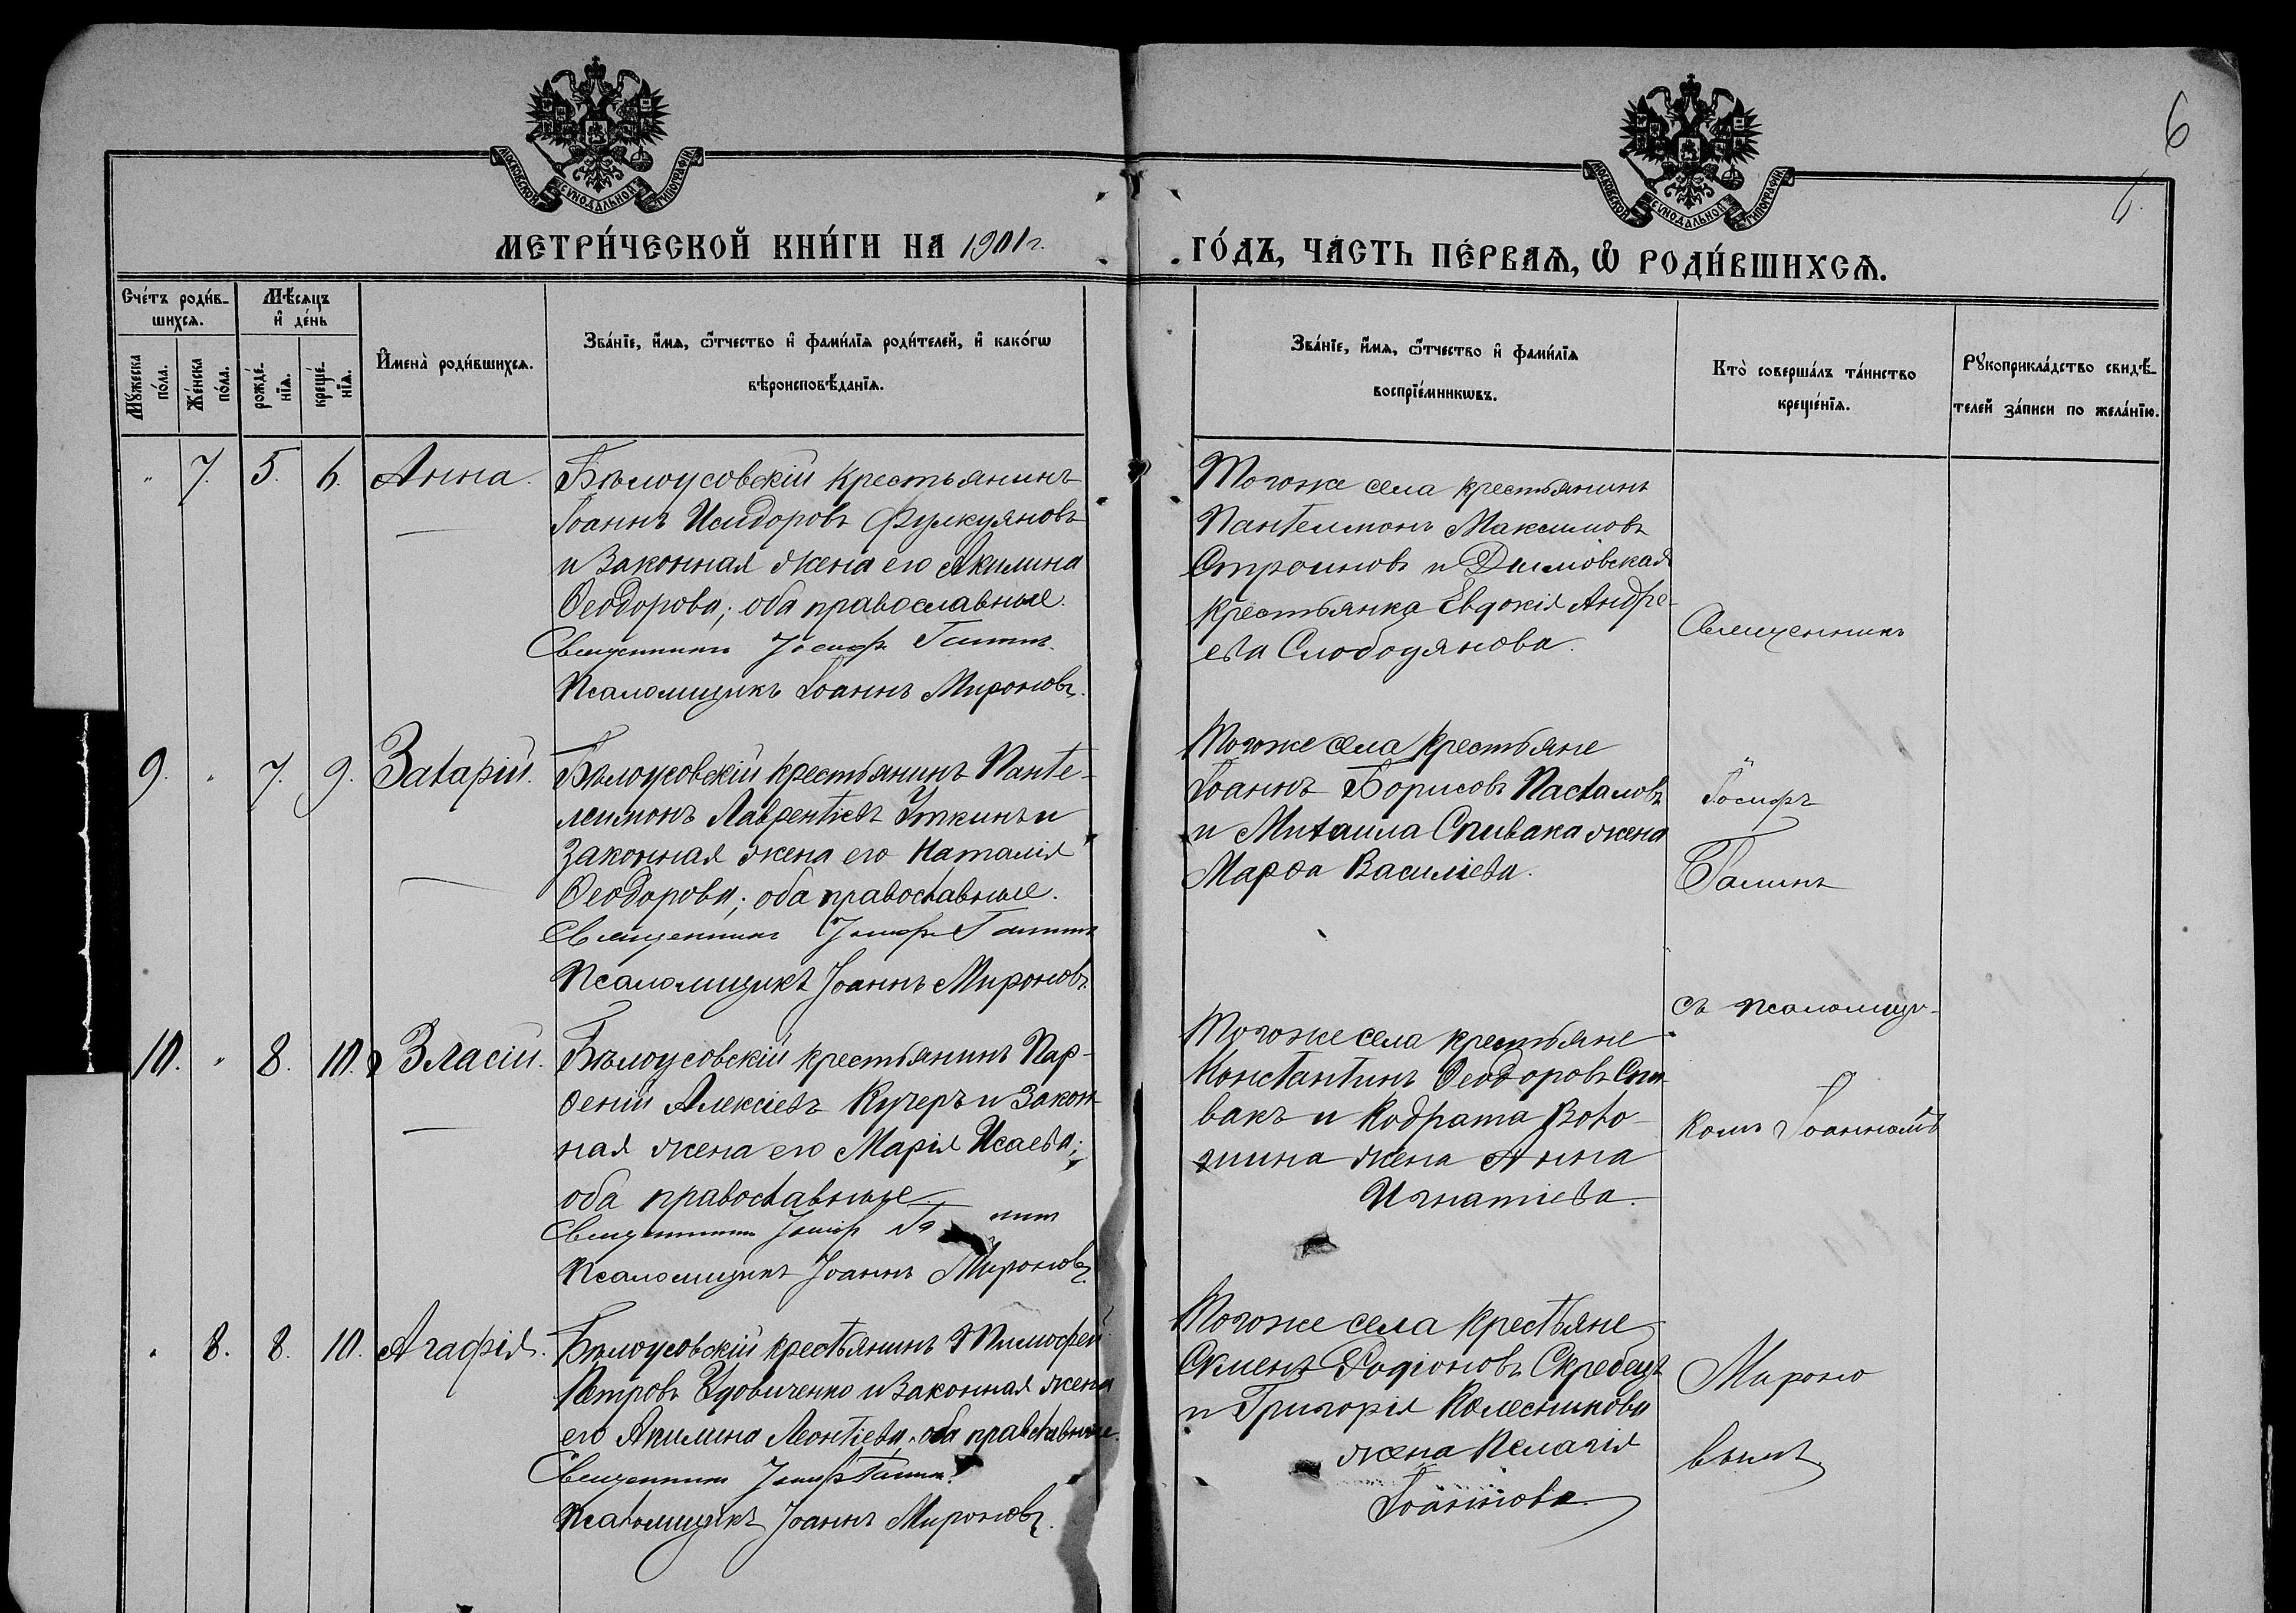 6
6.
МОСКОВСКОЙ СѴНОДАЛЬНОЙ ТИПОГРАФІИ
МОСКОВСКОЙ СѴНОДАЛЬНОЙ ТИПОГРАФІИ
МЕТРИ́ЧЕСКОЙ КНИ́ГИ НА 1901 г. ГО́ДЪ, ЧА́СТЬ ПЕ́РВАѦ, Ѽ РОДИ́ВШИХСѦ.
Сче́тъ роди́в-
шихсѧ.
Мѣ́сяцъ
и҆ де́нь
Мꙋ́жеска по́ла.
Же́нска по́ла.
рожде́-
нїѧ.
креще́-
нїѧ.
И҆мена̀ роди́вшихсѧ.
Зва́нїе, и҆́мѧ, ѻ҆́тчество и҆ фами́лїѧ роди́телей, и҆ како́гѡ
вѣроисповѣ́данїѧ.
Зва́нїе, и҆́мѧ, ѻ҆́тчество и҆ фами́лїѧ
воспрїе́мникѡвъ.
Кто̀ соверша́лъ та́инство
креще́нїѧ.
Рꙋкоприкла́дство свидѣ́-
телей за́писи по жела́нїю.
" 7. 5. 6. Анна.
Бѣлоусовскій крестьянинъ
Іоаннъ Исидоровъ Фулкуяновъ
и законная жена его Акилина
Ѳеодорова; оба православные.
Священникъ Іосифъ Галинъ.
Псаломщикъ Іоаннъ Мироновъ.
Тогоже села крестьянинъ
Пантелимонъ Максимовъ
Строиновъ и Дымовская
крестьянка Евдокія Андре-
ева Слободянова.
9. " 7. 9. Захарій.
Бѣлоусовскій крестьянинъ Панте-
леимонъ Лаврентіевъ Уткинъ и
законная жена его Наталія
Ѳеодорова; оба православные.
Священникъ Іосифъ Галинъ
Псаломщикъ Іоаннъ Мироновъ.
Тогоже села крестьяне
Іоаннъ Борисовъ Пасталовъ
и Михаила Спивака жена
Марѳа Василіева.
10. " 8. 10. Власій.
Бѣлоусовскій крестьянинъ Пар-
ѳеній Алексіевъ Кучеръ и закон-
ная жена его Марія Исаева;
оба православные.
Священникъ Іосифъ Галинъ
Псаломщикъ Іоаннъ Мироновъ.
Тогоже села крестьяне
Константинъ Ѳеодоровъ Спи-
вакъ и Кодрата
жена Анна
Игнатіева.
" 8. 8. 10. Агафія.
Бѣлоусовскій крестьянинъ Тимофей
Петровъ Удовиченко и законная жена
его Акилина Леонтіева, оба православные.
Священникъ Іосифъ Галинъ.
Псаломщикъ Іоаннъ Мироновъ.
Тогоже села крестьяне
Семенъ Родіоновъ Скребецъ
и Григорія Колесникова
жена Пелагія
Іоаннова.
Священникъ
Іосифъ
Галинъ
съ псаломщи-
комъ Іоанномъ
Мироно
вымъ.